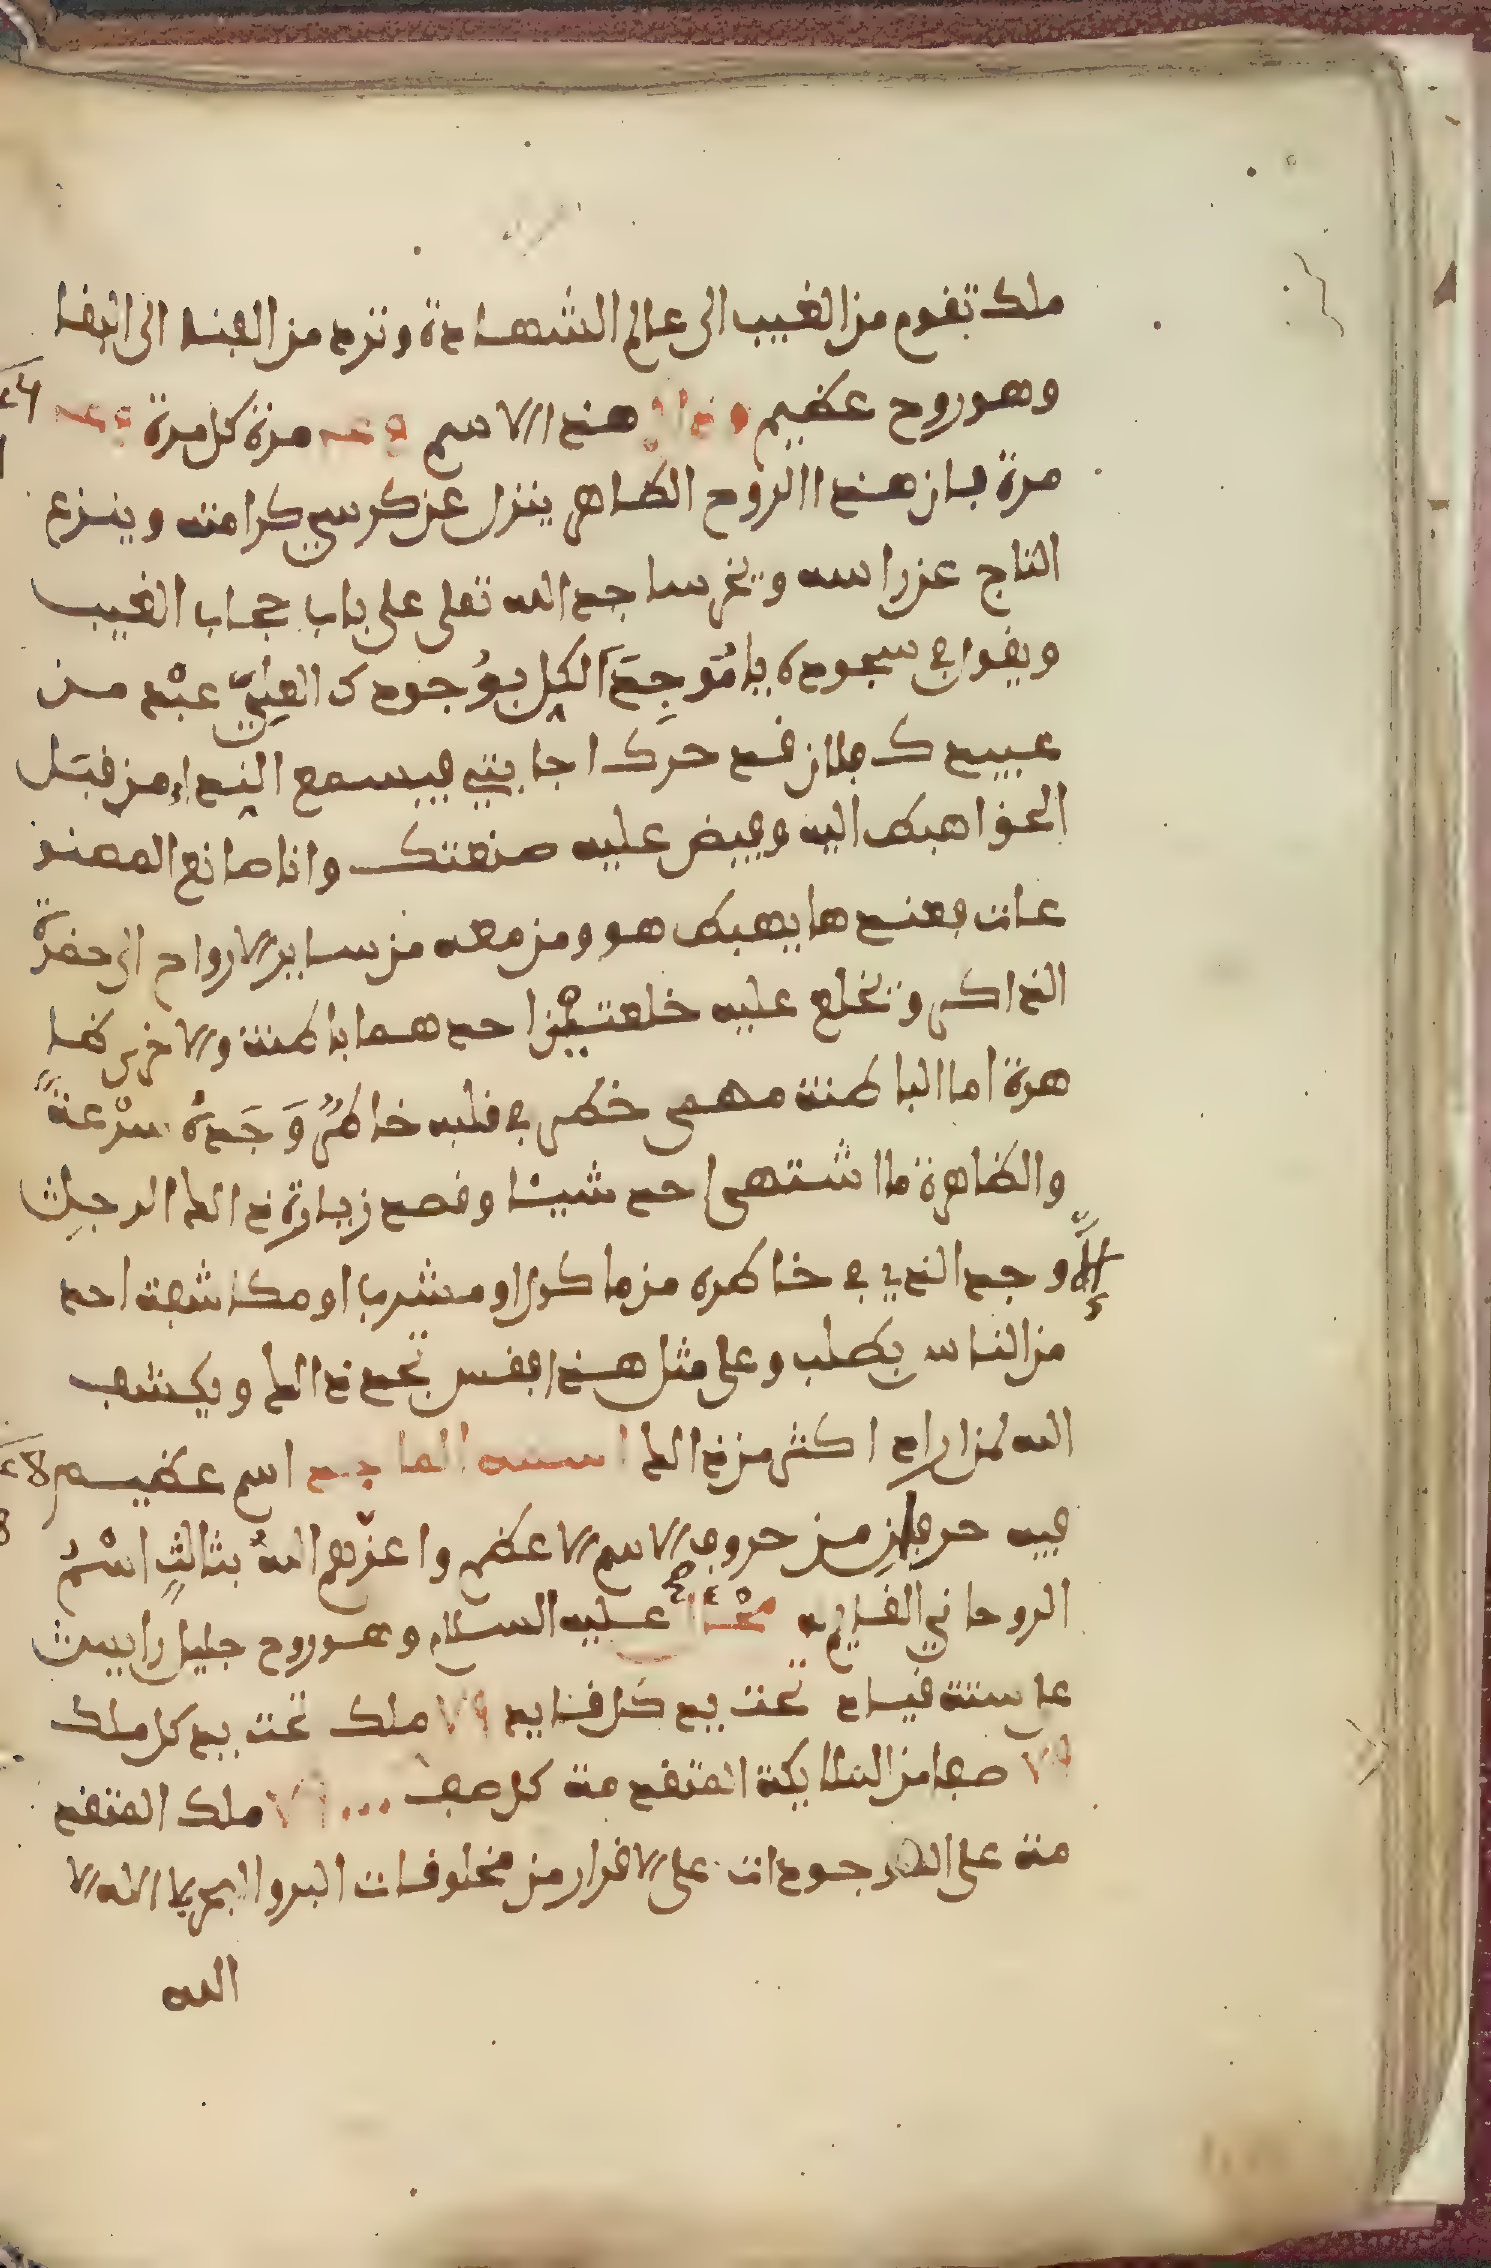 ملك تقوم من الغيب الى عالم الشهادة وترد من الفنا الى البقا
وهو روح عظيم هذا الاسم مرة كل مرة
مرة فان هذا الروح الطاهر ينزل عن كرسي كرامته وينزع
التاج عن راسه ويخر ساجد الله تعلى على باب حجاب الغيب
ويقول في سجوده يا مُوجِدَ الكل بوُجودك العَلِيّ عبْد من
عبيدك فلان قد حرك اجابتي فيسمع النداء من قبَل
الحق اهبط اليه وفيض عليه صنعتك وانا صانع المصنو
عات فعندها يهبط هو ومن معه من ساير الارواح الى حضرة
الذاكر وتخلع عليه خلعتين احدهما باطنة والاخرى ظا
هرة اما الباطنة مهمى خطر في قلبه خاطرٌ وَجَدهُ سرْعةً
والظاهرة ما اشتهى احد شيئا وقصد زيارة ذالك الرجل
إلّا وجد الذي في خاطره من ماكول او مشرب او مكاشفة احد
من الناس يطلب وعلى مثل هذا فقس تجد ذالك ويكشف
الله لمن اراد اكثر من ذالك اسمه الماجد اسم عظيم
فيه حرفانِ من حروف الاسم الاعظم واعزهم اللهُ بثالثٍ اسْمُ
الروحاني القايم به عليه السلام وهو روح جليل رايس
على ستة قياد تحت يد كل قايد ٧٩ ملك تحت يد كل ملك
٧٩ صفا من الملايكة المتقدمة كل صف ملك المتقد
مة على الموجودات على الاقرار من مخلوقات البر والبحر يا الاه الا
الله